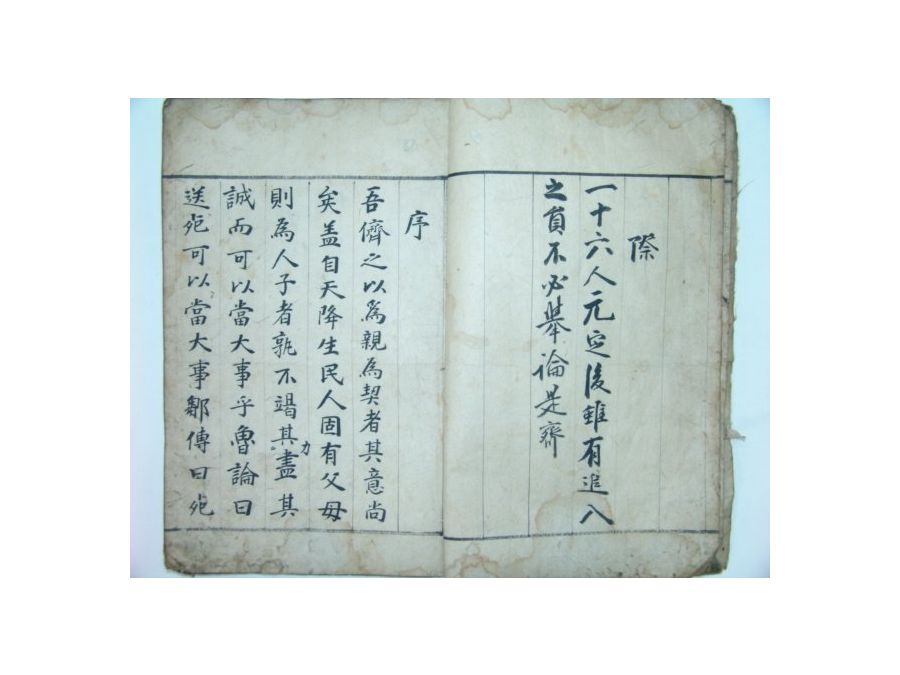 際
一十六人元定後雖有追入
之員不必擧論是齊
序
吾儕之以爲親爲契者其意尚
矣盖自天降生民人固有父母
則爲人子者孰不竭其力盡其
誠而可以當大事乎魯論曰
送死可以當大事鄒傳曰死